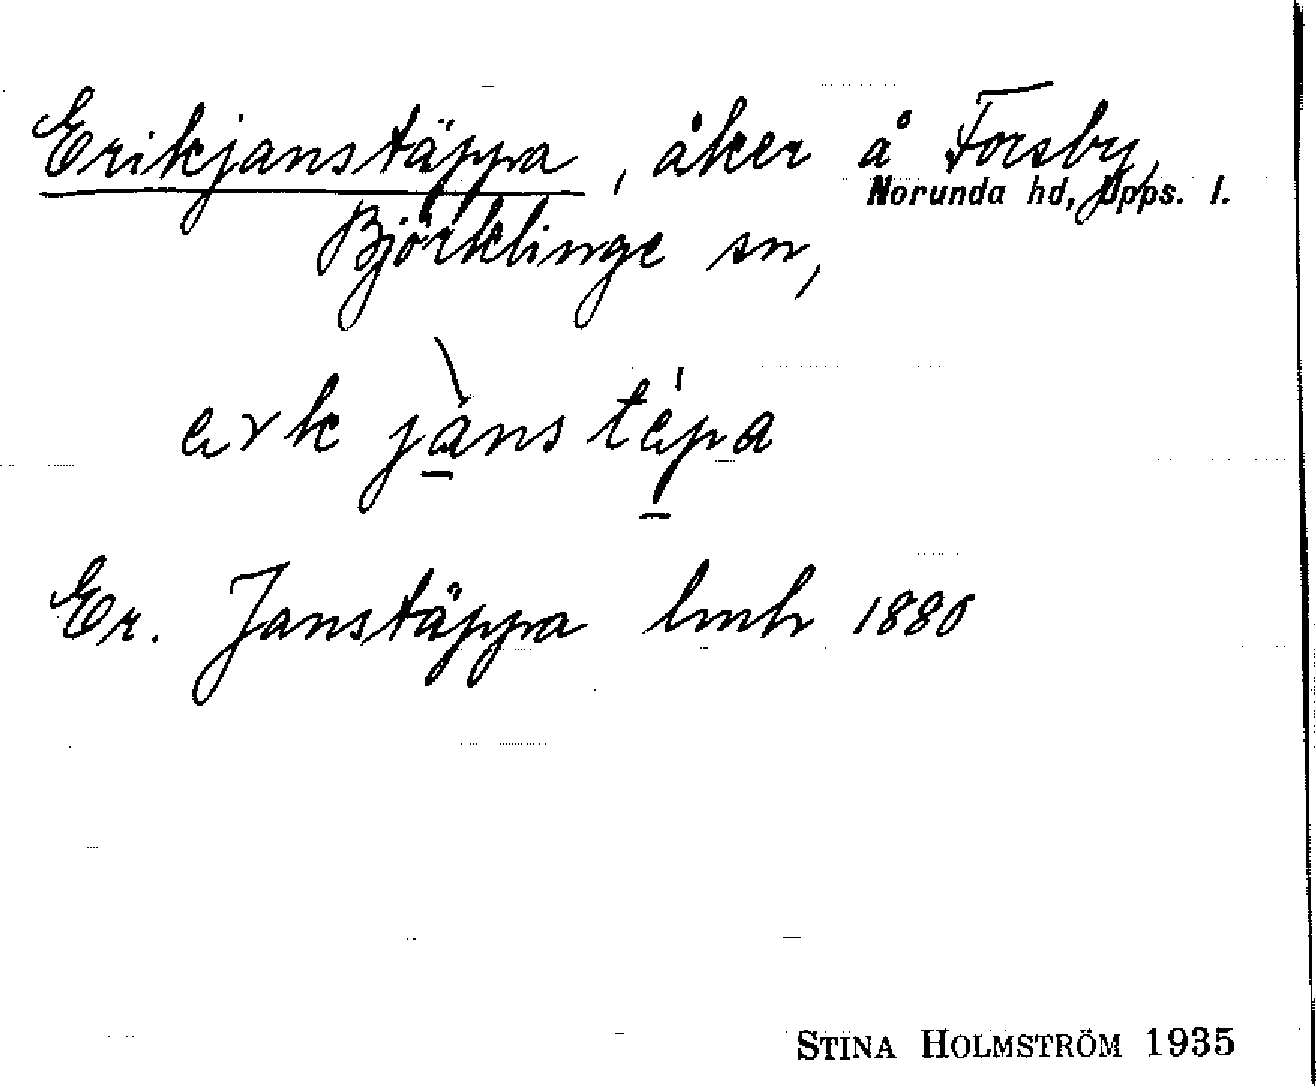 Erikjanstäppa, åker å Forsby,
Norunda hd, Upps. l.
Björklinge sn,
erk jànstépa
Er. Janstäppa lmh 1880
STINA HOLMSTRÖM 1935